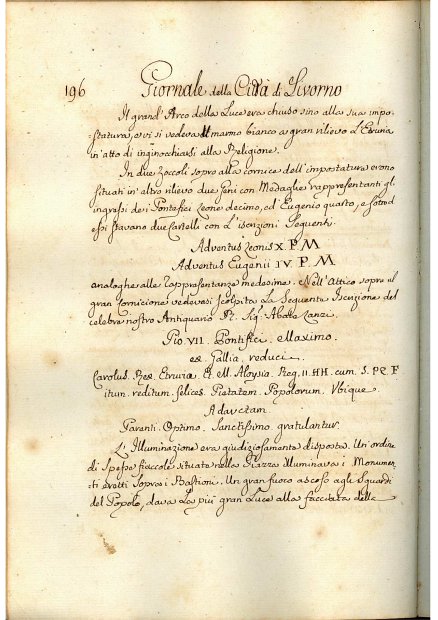 196 Giornale della Città di Livorno
Il grand' Arco della Luce era chiuso sino alla sua impo-
statura, ovi si vedeva Il marmo bianco a gran rilievo L'Etruria
in' atto di inginocchiarsi alla Religione.
In due Zoccoli sopra alla cornice dell' impostatura erono
situati in' altro rilievo due Geni con Medaglie rappresentanti gl'
ingressi dei Pontefici Leone decimo, ed' Eugenio quarto, e sotto d'
essi stavano due Cartelli con L'iscrizioni Seguenti.
Adventus Leonis X. P. M
Adventus Eugenii IV. P. M.
analoghe alle rappresentanze medesime. Nell' Attico sopra il
gran Cornicione vedevasi scolpita La Seguente Iscrizione del
celebre nostro Antiquario Sig. Abate Lanzi.
Pio. VII. Pontifici. Maximo.
ex. Gallia. reduci.
Carolus. Rex. Etruriæ. Et. M. Aloysia. Reg. II. HH. cum. S. P. Q. F
itum. reditum. felices. Pietatem. Populorum. Ubique
Adauctam.
Parenti. Optimo. Sanctissimo. gratulantur.
L' Illuminazione era giudiziosamente disposta. Un' ordine
di Spesse fiaccole situate nella Piazza illuminava i Monumen-
ti eretti Sopra i Bastioni. Un gran fuoco ascoso agli Sguardi
del Popolo, dava La più gran Luce alla facciata della